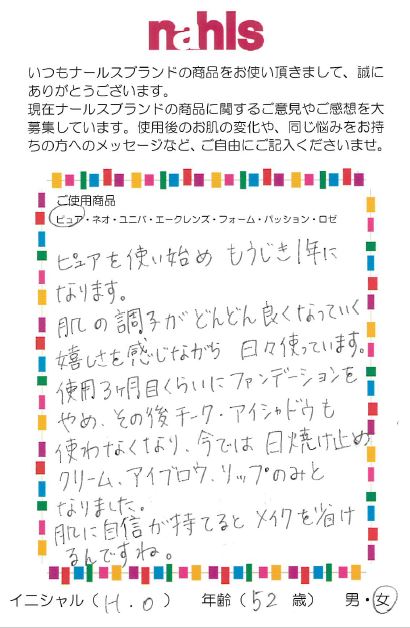 nahls
いつもナールスブランドの商品をお使い頂きまして、誠に
ありがとうございます。
現在ナールスブランドの商品に関するご意見やご感想を大
募集しています。使用後のお肌の変化や、同じ悩みをお持
ちの方へのメッセージなど、ご自由にご記入くださいませ。
ご使用商品
ピュア・ネオ・ユニバ・エークレンズ・フォーム・パッション・ロゼ
ピュアを使い始め もうじき1年に
なります。
肌の調子がどんどん良くなっていく
嬉しさを感じながら 日々使っています。
使用3ヶ月目くらいにファンデーションを
やめ、その後チーク・アイシャドウも
使わなくなり、今では 日焼け止め
クリーム、アイブロウ、リップのみと
なりました。
肌に自信が持てると メイクを省け
るんですね。
イニシャル（H.O） 年齢（52 歳） 男・女